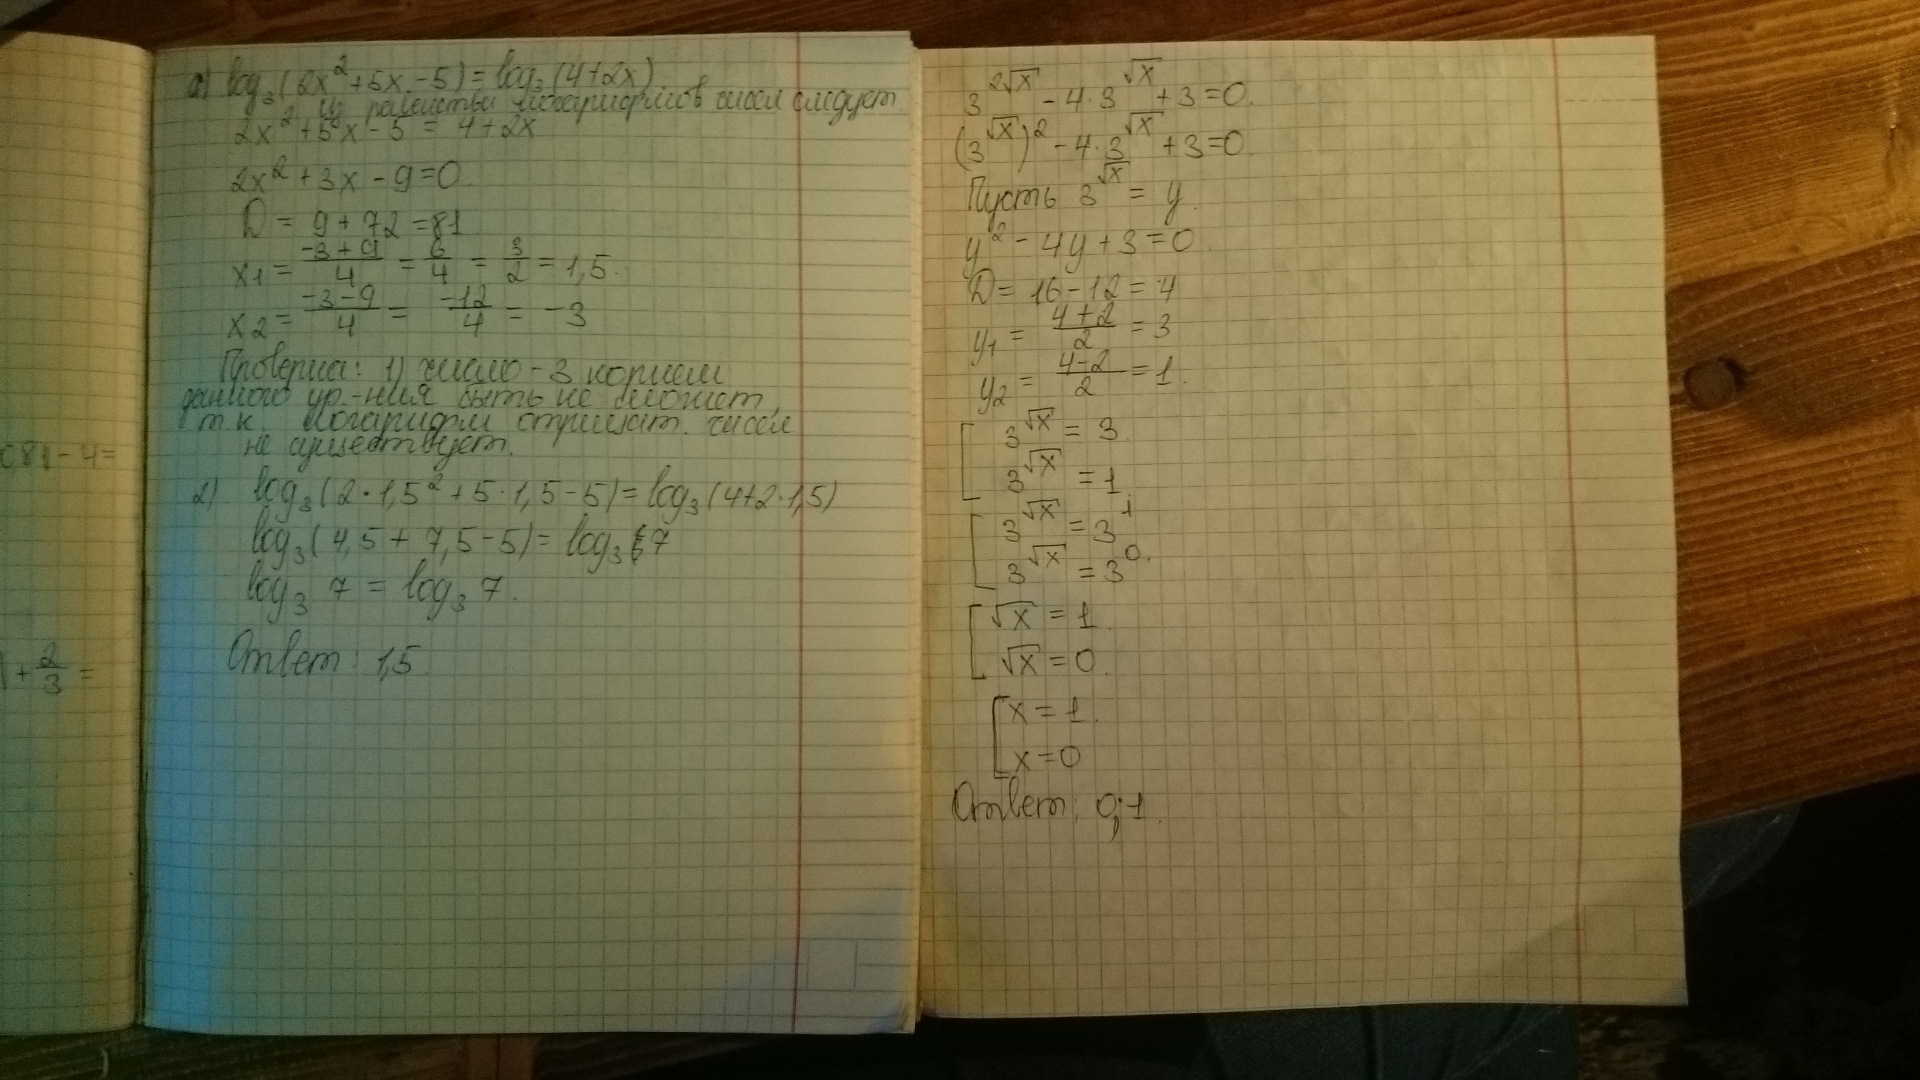 081-4=
1+2/3=
а) log₃(2x²+5x-5)=log₃(4+2x)
Из равенства логарифмов чисел следует
2x²+5x-5=4+2x
2x²+3x-9=0
D=9+72=81
x₁=(-3+9)/4=6/4=3/2=1,5.
x₂=(-3-9)/4=-12/4=-3
Проверка: 1) число -3 корнем
данного ур.-ния быть не может,
т.к. логарифм отрицат. чисел
не существует.
2) log₃(2·1,5²+5·1,5-5)=log₃(4+2·1,5)
log₃(4,5+7,5-5)=log₃7
log₃7=log₃7.
Ответ: 1,5.
3^(2√x)-4·3^(√x)+3=0.
(3^(√x))²-4·3^(√x)+3=0
Пусть 3^(√x)=y.
y²-4y+3=0
D=16-12=4
y₁=(4+2)/2=3
y₂=(4-2)/2=1.
[3^(√x)=3.
3^(√x)=1.
[3^(√x)=3¹
3^(√x)=3⁰.
[√x=1.
√x=0.
[x=1.
x=0
Ответ: 0;1.